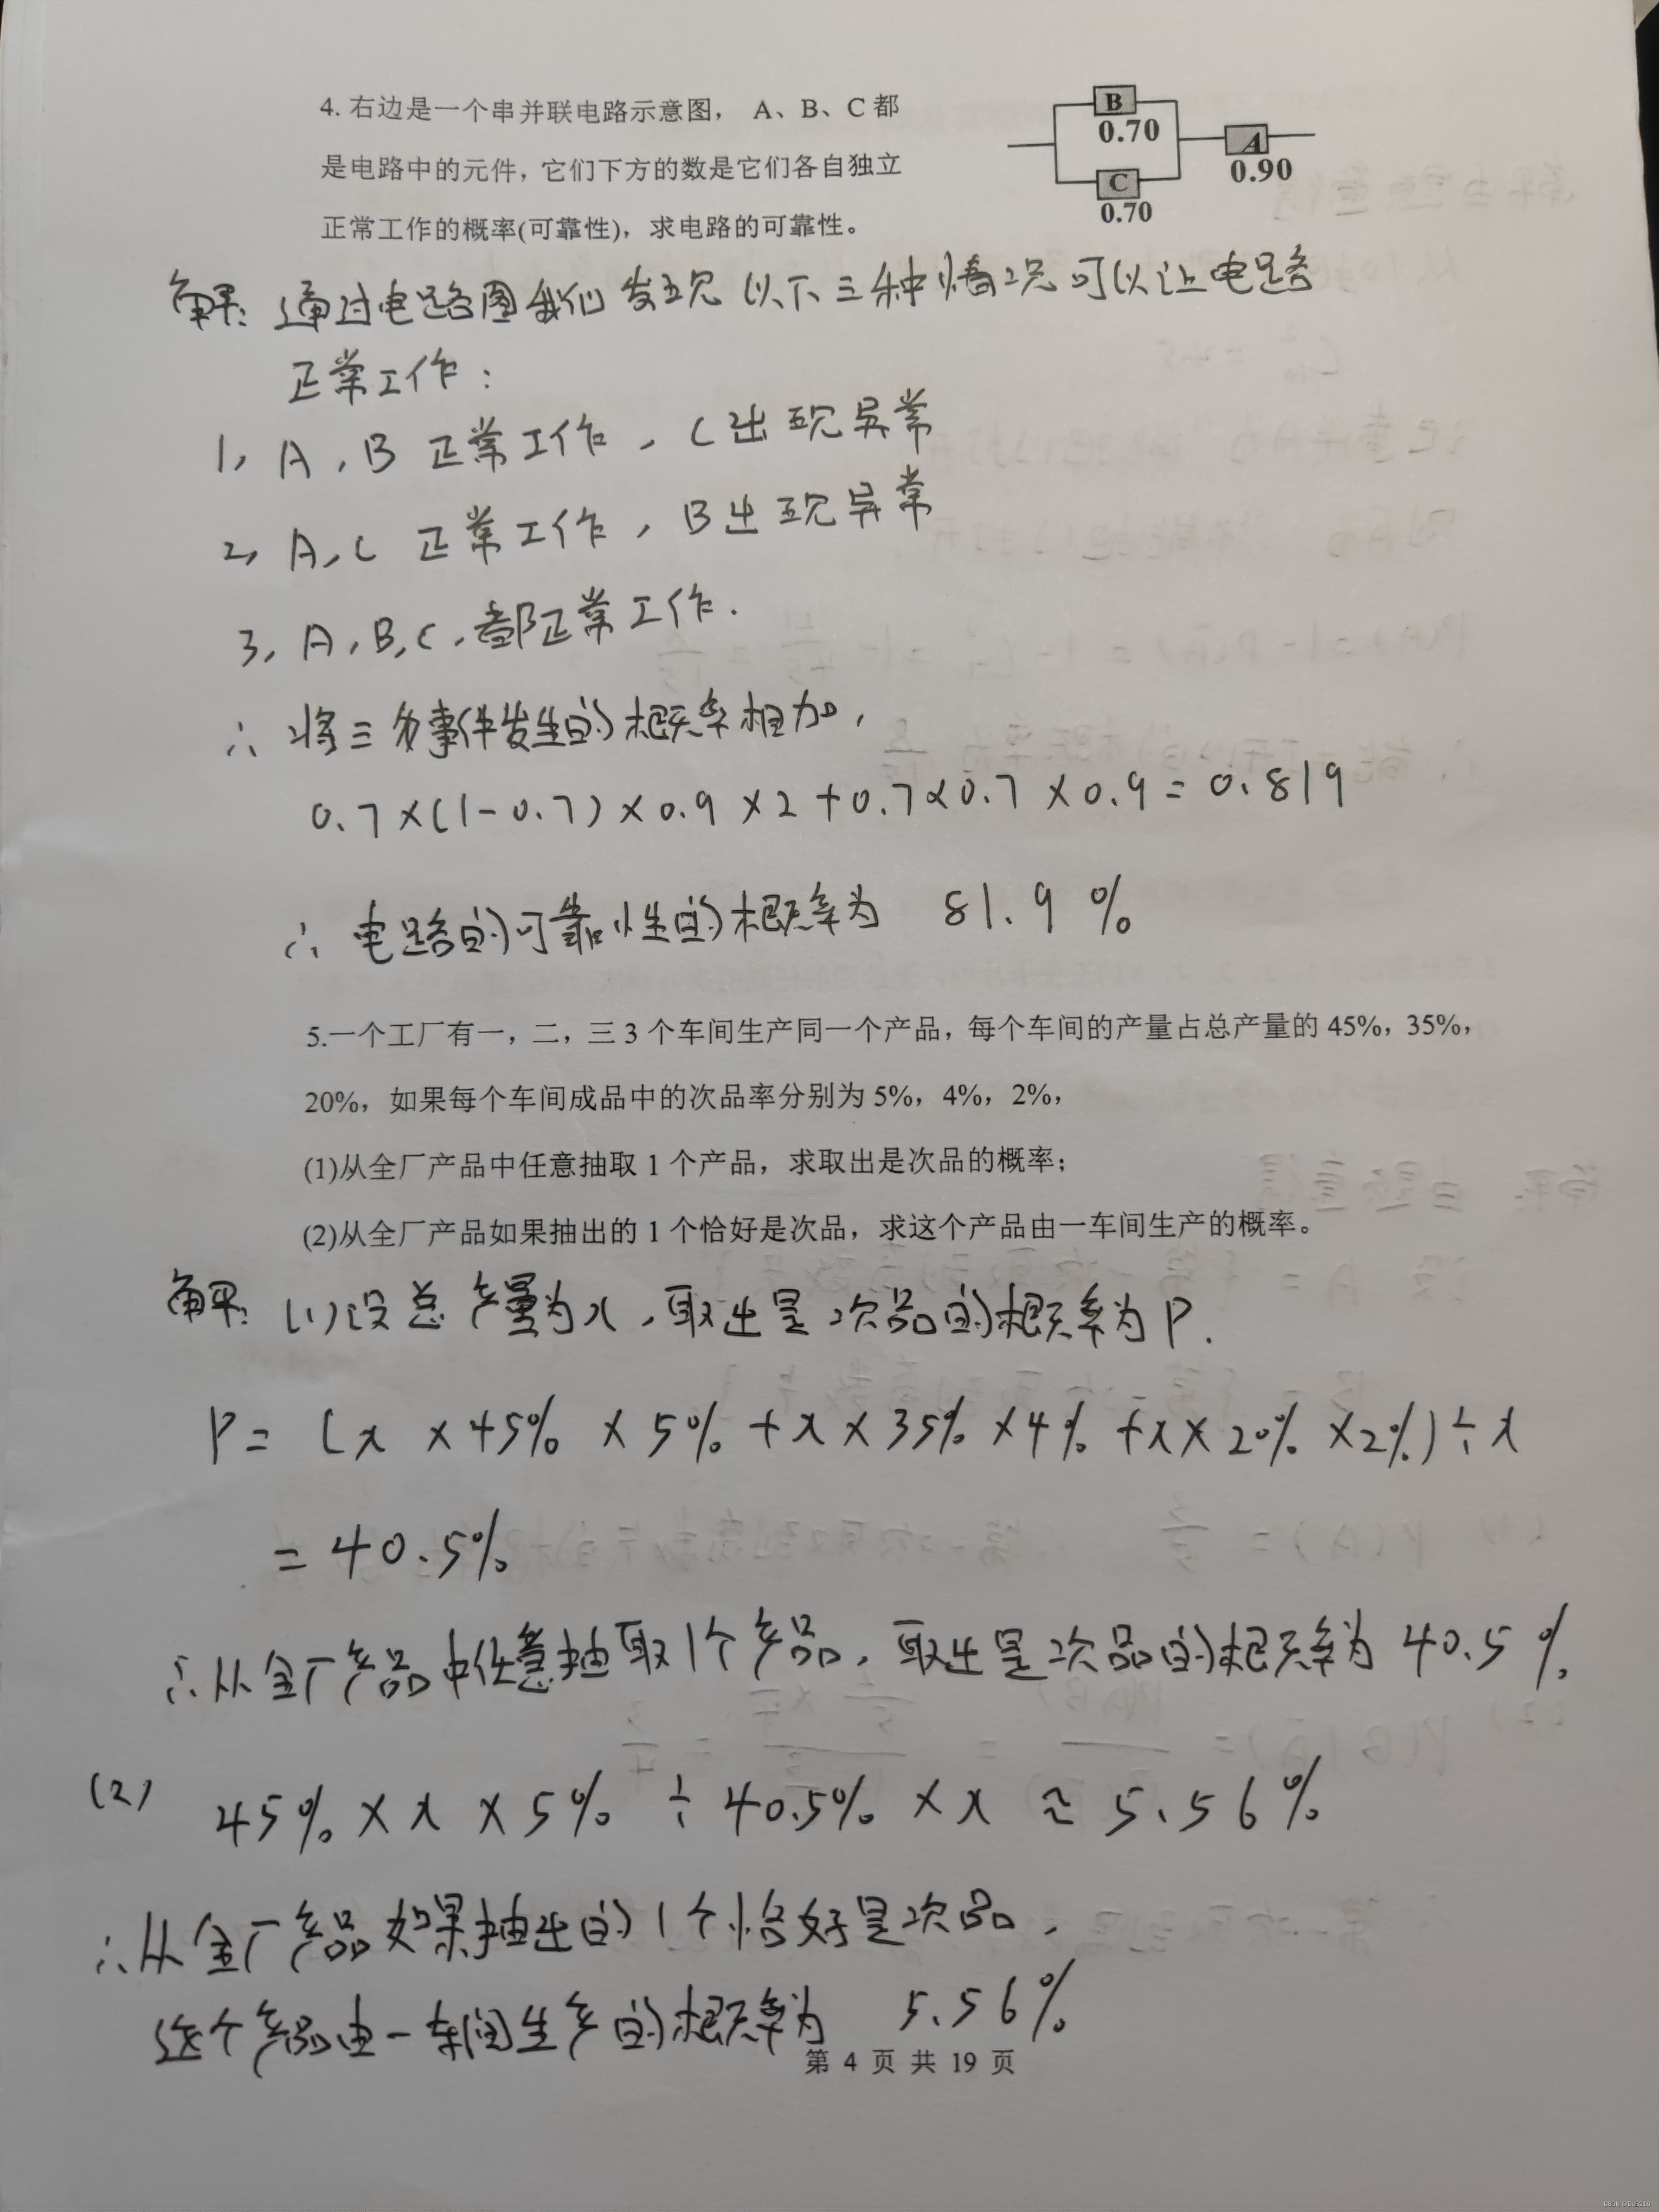 4. 右边是一个串并联电路示意图， A、B、C 都
是电路中的元件，它们下方的数是它们各自独立
正常工作的概率(可靠性)，求电路的可靠性。
B
0.70
C
0.70
A
0.90
解: 通过电路图我们发现以下三种情况可以让电路
正常工作：
1, A, B 正常工作，C出现异常
2, A, C 正常工作，B出现异常
3, A, B, C, 都正常工作.
∴ 将三个事件发生的概率相加，
0.7×(1-0.7)×0.9×2+0.7×0.7×0.9=0.819
∴ 电路的可靠性的概率为 81.9%
5.一个工厂有一，二，三 3 个车间生产同一个产品，每个车间的产量占总产量的 45%，35%，
20%，如果每个车间成品中的次品率分别为 5%，4%，2%，
(1)从全厂产品中任意抽取 1 个产品，求取出是次品的概率；
(2)从全厂产品如果抽出的 1 个恰好是次品，求这个产品由一车间生产的概率。
解: (1)设总产量为x，取出是次品的概率为P.
P= (x×45%×5%+x×35%×4%+x×20%×2%)÷x
= 40.5%
∴从全厂产品中任意抽取1个产品，取出是次品的概率为40.5%
(2) 45%×x×5%÷40.5%×x≈5.56%
∴从全厂产品如果抽出的1个恰好是次品，
这个产品由一车间生产的概率为 5.56%
第 4 页 共 19 页
CSDN @DuB210